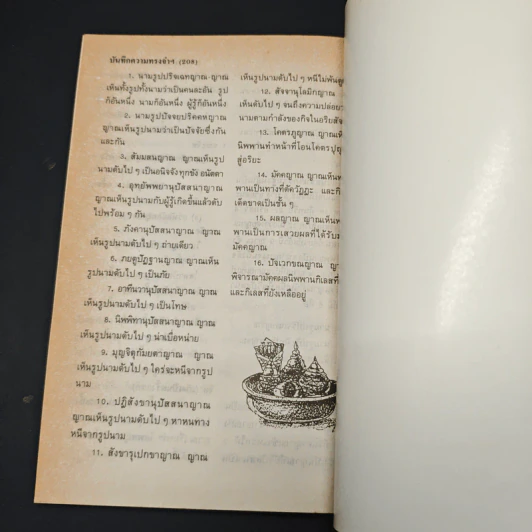 บันทึกความทรงจำฯ (208)
1. นามรูปปริจเฉทญาณ ญาณ
เห็นทั้งรูปทั้งนามว่าเป็นคนละอัน รูป
ก็อันหนึ่ง นามก็อันหนึ่ง ผู้รู้ก็อันหนึ่ง
2. นามรูปปัจจยปริคคหญาณ
ญาณเห็นรูปนามว่าเป็นปัจจัยซึ่งกัน
และกัน
3. สัมมสนญาณ ญาณเห็นรูป
นามดับไป ๆ เป็นอนิจจังทุกขัง อนัตตา
4. อุทยัพพยานุปัสสนาญาณ
ญาณเห็นรูปนามกับผู้รู้เกิดขึ้นแล้วดับ
ไปพร้อม ๆ กัน
5. ภังคานุปัสสนาญาณ ญาณ
เห็นรูปนามดับไป ๆ ถ่ายเดียว
6. ภยตูปัฏฐานญาณ ญาณเห็น
รูปนามดับไป ๆ เป็นภัย
7. อาทีนวานุปัสสนาญาณ ญาณ
เห็นรูปนามดับไป ๆ เป็นโทษ
8. นิพพิทานุปัสสนาญาณ ญาณ
เห็นรูปนามดับไป ๆ น่าเบื่อหน่าย
9. มุญจิตุกัมยตาญาณ ญาณ
เห็นรูปนามดับไป ๆ ใคร่จะหนีจากรูป
นาม
10. ปฏิสังขานุปัสสนาญาณ
ญาณเห็นรูปนามดับไป ๆ หาหนทาง
หนีจากรูปนาม
11. สังขารุเปกขาญาณ ญาณ
เห็นรูปนามดับไป ๆ หนีไม่พ้น
12. สัจจานุโลมิกญาณ
เห็นดับไป ๆ จนถึงความปล่อยวา
นามตามกำลังของกิจในอริยสัจ
13. โคตรภูญาณ ญาณเห็น
นิพพานทำหน้าที่โอนโคตรปุถุ
สู่อริยะ
14. มัคคญาณ ญาณเห็น
พานเป็นทางที่ตัดวัฏฏะ และกิ
เด็ดขาดเป็นชั้น ๆ
15. ผลญาณ ญาณเห็น
พานเป็นการเสวยผลที่ได้รับ
มัคคญาณ
16. ปัจเวกขณญาณ
พิจารณามัคคผลนิพพานกิเลสที่
และกิเลสที่ยังเหลืออยู่